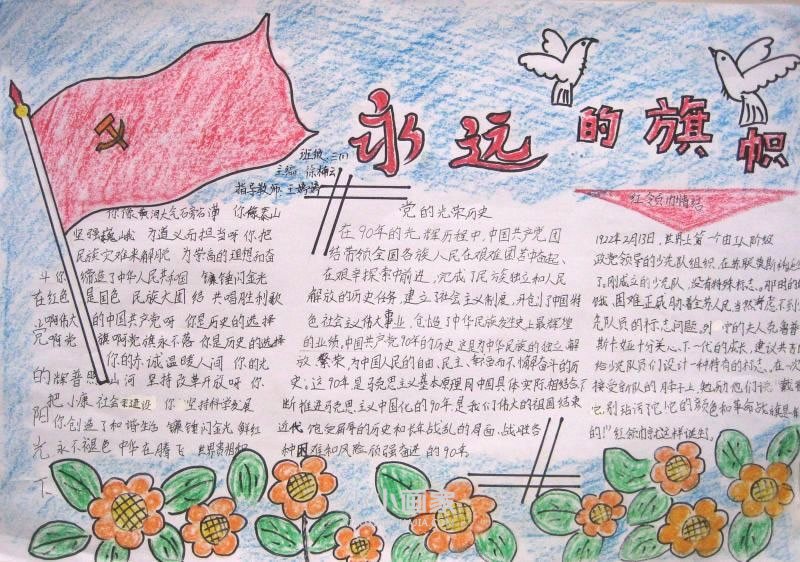 永远的旗帜
班级:三(1)
主编:徐楠云
指导教师:王婷婷
你像黄河大气磅礴 你像泰山
坚强巍峨 为道义而担当呀你把
民族灾难来解脱 为崇高的理想而奋
斗你 缔造了中华人民共和国 镰锤闪金光
在红色 是国色 民族大团结 共唱胜利歌
啊伟大 的中国共产党呀 你是历史的选择
啊光 旗啊党旗永不落 你是历史的选择
你的赤诚温暖人间 你的光
的辉普照 山河 坚持改革开放呀 你
把小康 社会来建设 你 坚持科学发展
阳 你创造了和谐生活 镰锤闪金光 鲜红
光 永不褪色 中华在腾飞 世界贵相和
下
党的光荣历史
在90年的光辉历程中,中国共产党团
结带领全国各族人民在艰难困苦中奋起、
在艰辛探索中前进,完成了民族独立和人民
解放的历史任务,建立社会主义制度,开创了中国特
色社会主义伟大事业,创造了中华民族发史上最辉煌
的业绩,中国共产党90年的历史,这是为中华民族的独立、解
放、繁荣,为中国人民的自由、民主、幸福而不懈奋斗的历
史;这90年是马克思主义基本原理同中国具体实际相结合不
断推进马克思主义中国化的90年是我们伟大的祖国结束
近代饱受屈辱的历史和长年战乱的局面、战胜各
种困难和风险顽强奋进的90年
红领巾的情结
1922年2月13日,世界上第一个由工人阶级
政党领导的少先队组织,在苏联莫斯科
了,刚成立的少先队,没有特殊标志,那时的
俄,困难正威胁着全苏人民当然考虑不到
先队员的标志问题,列 的夫人克鲁普
斯卡娅十分关心下一代的成长,建议共青
给少先队员们设计一种特有的标志,在一次
接受新队的 上,她勉励他们说:戴着
它,别玷污了它!它的颜色和革命战旗是
的!"红领巾就这样诞生。